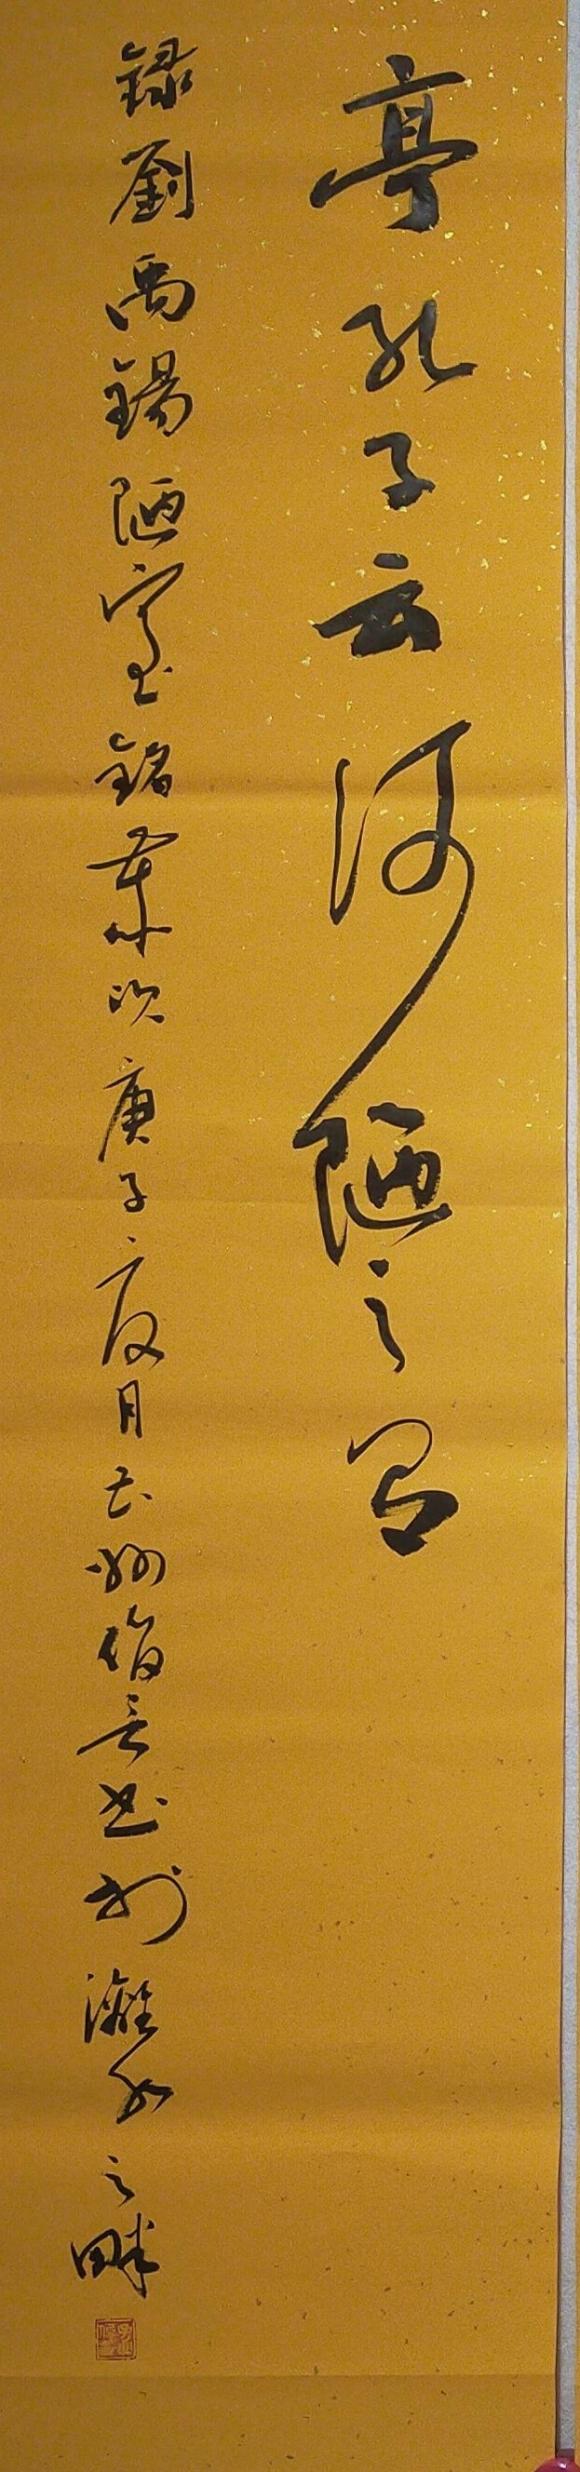 亭孔子云何陋之有
録劉禹錫陋室銘歲次庚子夏月書於水之畔